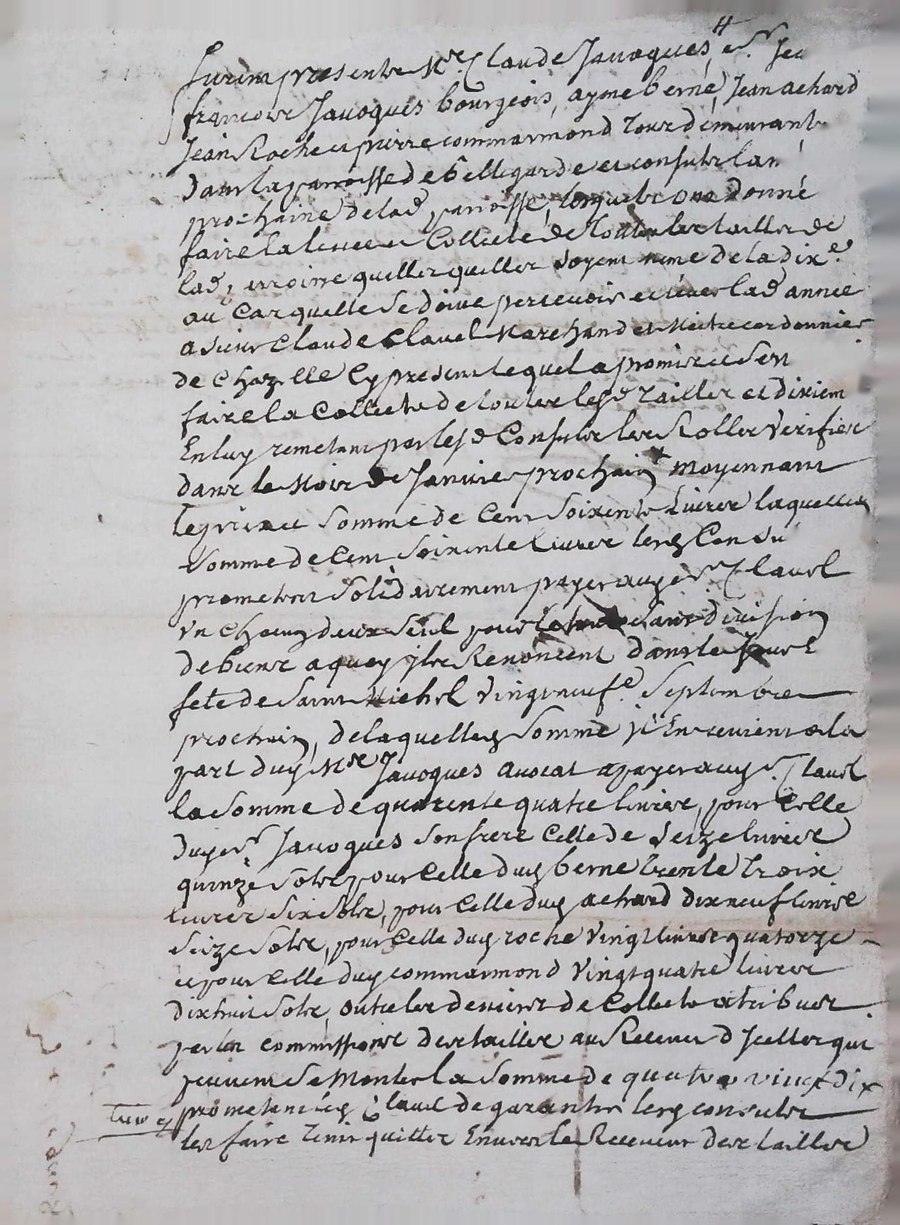 furent presents Mr. Claude Javoques, & Sr. Jea
francois Javoques bourgeois, ayme berne, Jean achard
Jean Roche et pierre commarmond tous demeurants
dans la parroisse de bellegarde et consuls lan
prochaine de lad. parroisse, lesquels ont donné
faire la levee et Collecte de toutes les tailles de
lad. parroisse quelles quelles soyent meme de la dixe.
au Cas quelle se doive percevoir et lever lad annee
a sieur Claude Clavel Marchand et Maitre cordonnier
de Chazelle Cy present lequel a promis et sen
faire la Collecte de toutes lesd. tailles et dixiem
En luy remetant par lesd. Consuls les Rolles verifies
dans le Mois de Janvier prochain moyennant
le prix et somme de Cent soixente Livres laquelle
somme de Cent soixente Livres lesd Consu
prometent solidairement payer aud sr. Clavel
un chacun deux seul pour le tout sans division
de biens a quoy ils Renoncent dans le Jour &
fete de Saint Michel vingt neufe. Septembre
prochain, de laquelle somme il En revient a la
part dud Mre Javoques avocat a payer aud sr. Clavel
la somme de quarente quatre livres, pour Celle
dud sr. Javoques son frere Celle de seize livres
quinze sols, pour Celle dud berne trente trois
livres six sols, pour Celle dud achard dix neuf livres
seize sols, pour Celle dud roche vingt livres quatorze
et pour Celle dud commarmond vingt quatre livres
dix huit sols, outre les deniers de Collecte atribues
par la commission des tailles au Receveur d'Icelles qui
peuvent se Monter la somme de quatre vingt dix
prometant led Clavel de garantir lesd consuls
les faire tenir quittes Envers le Receveur des tailles